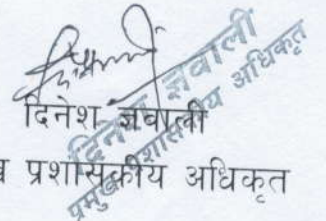 दिनेश ज्ञवाली
प्रशासकीय अधिकृत
दिनेश ज्ञवाली
प्रमुख प्रशासकीय अधिकृत